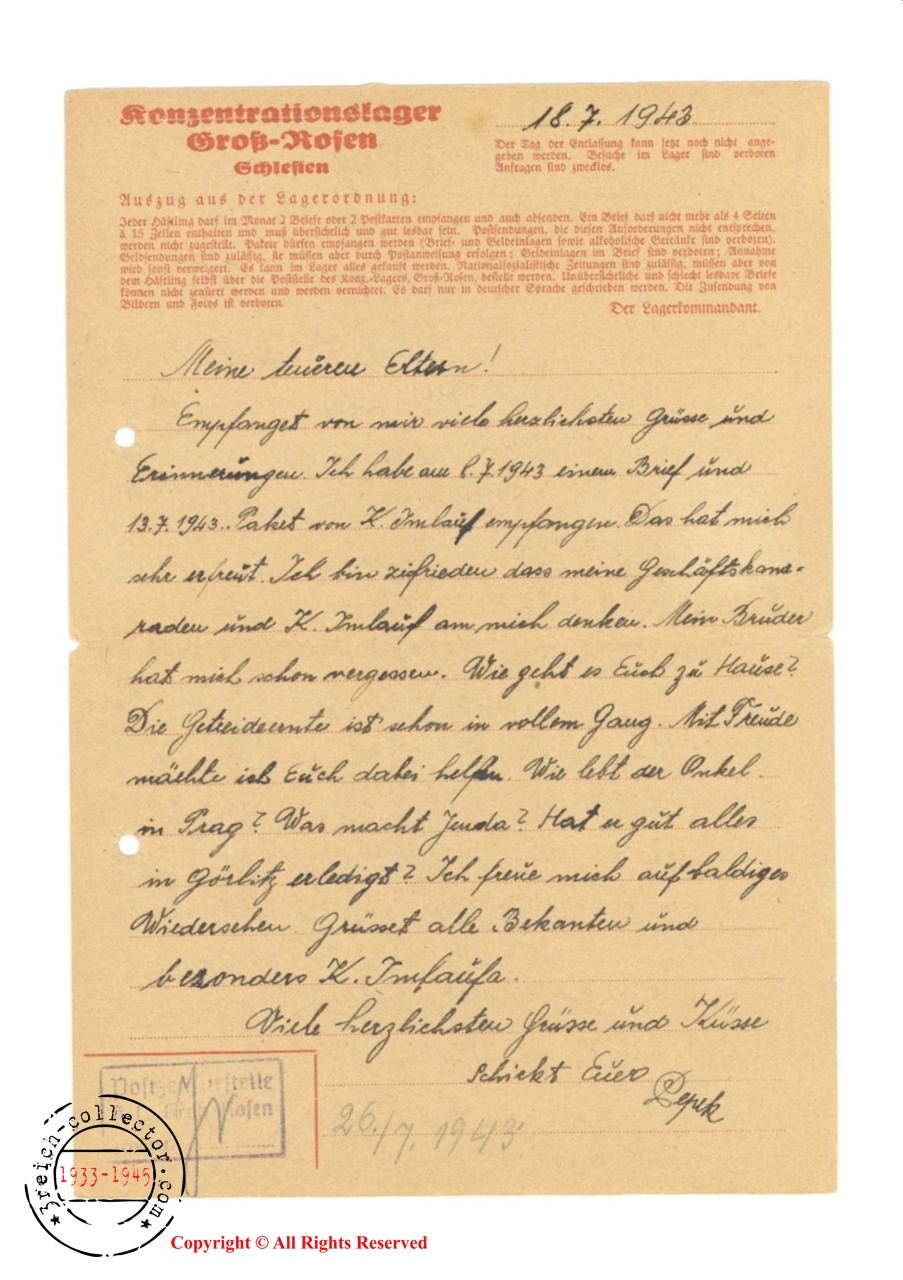 Konzentrationslager
Groß-Rosen
Schlesien
18.7. 1943
Der Tag der Entlassung kann jetzt noch nicht ange-
geben werden. Besuche im Lager sind verboten
Anfragen sind zwecklos.
Auszug aus der Lagerordnung:
Jeder Häftling darf im Monat 2 Briefe oder 2 Postkarten empfangen und auch absenden. Ein Brief darf nicht mehr als 4 Seiten
à 15 Zeilen enthalten und muß übersichtlich und gut lesbar sein. Postsendungen, die diesen Anforderungen nicht entsprechen,
werden nicht zugestellt. Pakete dürfen empfangen werden (Brief- und Geldeinlagen sowie alkoholische Getränke sind verboten).
Geldsendungen sind zulässig, sie müssen aber durch Postanweisung erfolgen; Geldeinlagen im Brief sind verboten; Annahme
wird sonst verweigert. Es kann im Lager alles gekauft werden. Nationalsozialistische Zeitungen sind zulässig, müssen aber von
dem Häftling selbst über die Poststelle des Konz.-Lagers, Groß-Rosen, bestellt werden. Unübersichtliche und schlecht lesbare Briefe
können nicht zensiert werden und werden vernichtet. Es darf nur in deutscher Sprache geschrieben werden. Die Zusendung von
Bildern und Fotos ist verboten.
Der Lagerkommandant.
Meine teueren Eltern!
Empfanget von mir viele herzlichsten Grüsse und
Erinnerungen. Ich habe am 8.7.1943 einen Brief und
13.7.1943. Paket von K. Imlauf empfangen. Das hat mich
sehr erfreut. Ich bin zufrieden dass meine Geschäftskame-
raden und K. Imlauf am mich denken. Mein Bruder
hat mich schon vergessen. Wie geht es Euch zu Hause?
Die Getreideernte ist schon in vollem Gang. Mit Freude
mächte ich Euch dabei helfen. Wie lebt der Onkel
in Prag? Was macht Jenda? Hat er gut alles
in Görlitz erledigt? Ich freue mich auf baldiges
Wiedersehen. Grüsset alle Bekanten und
besonders K. Imlaufa.
Viele herzlichsten Grüsse und Küsse
schickt Euer
Pepek
Postzensurstelle
Rosen
26./7. 1943
3reich-collector.com
1933-1945
Copyright © All Rights Reserved